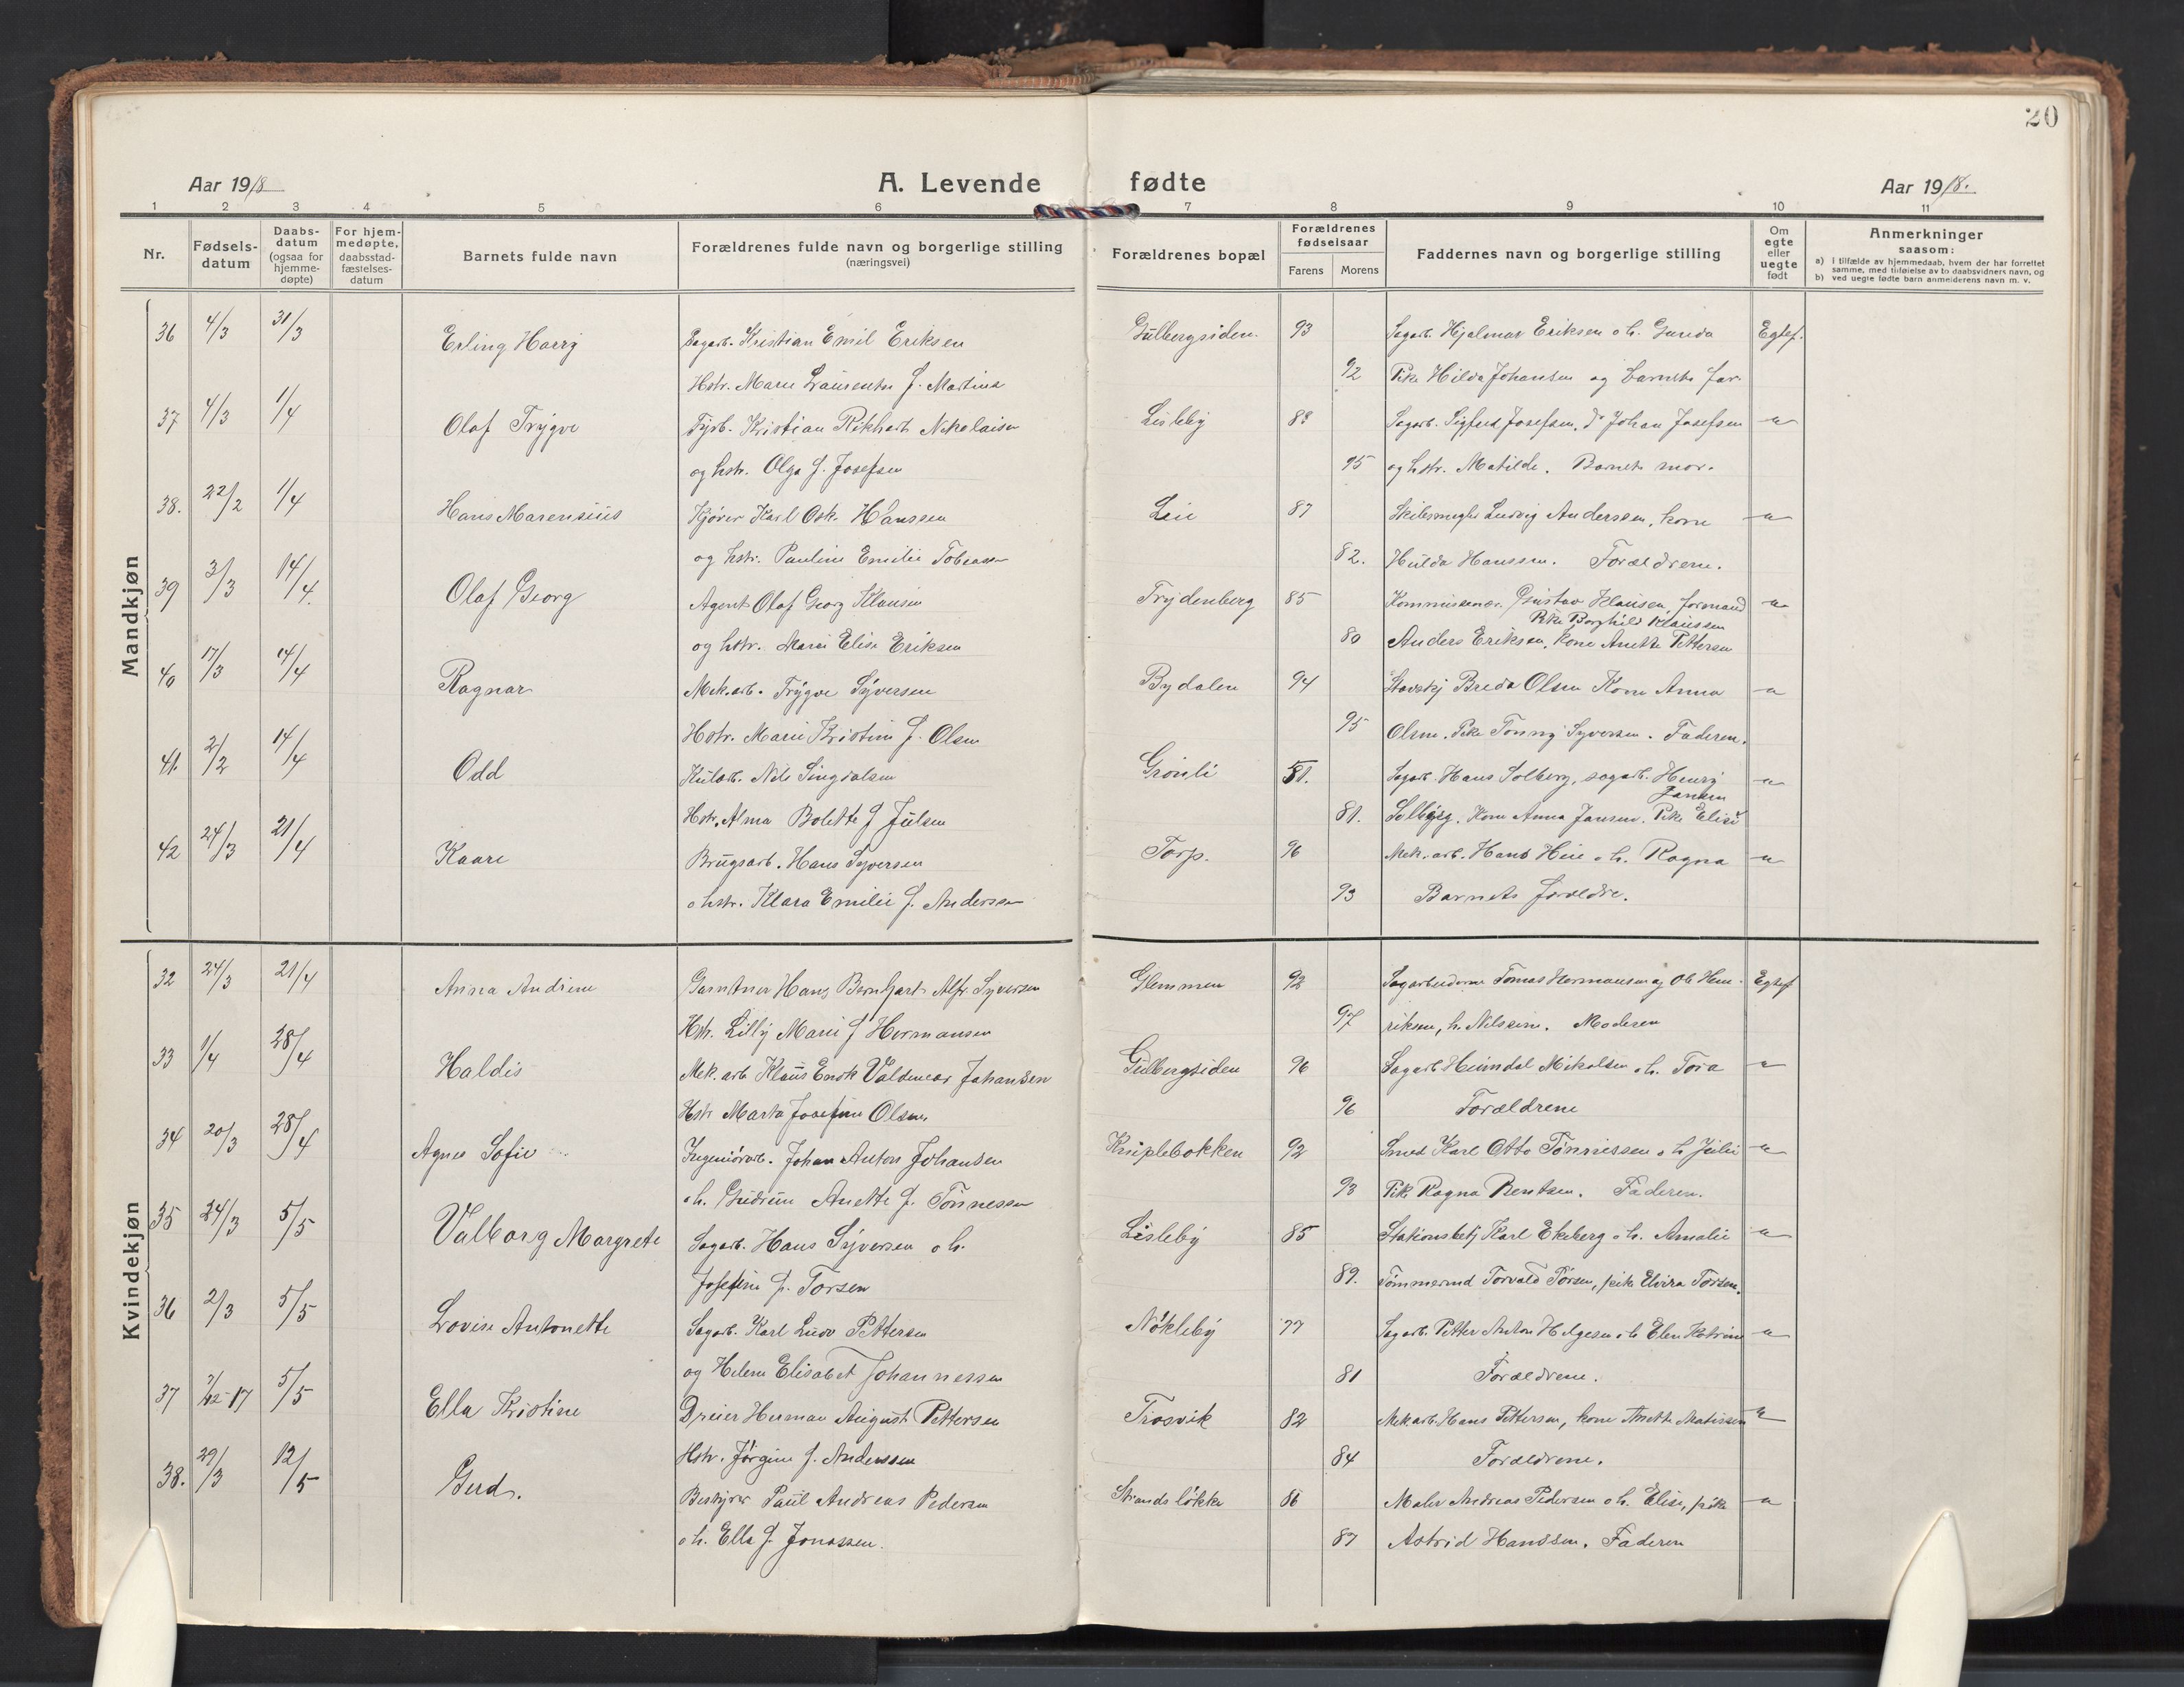 20
Aar 1918
A. Levende fødte
Aar 1918.
1 2 3 4 5 6 7 8 9 10 11
Nr.
Fødsels-
datum
Daabs-
datum
(ogsaa for
hjemme-
døpte)
For hjem-
medøpte,
daabsstad-
fæstelses-
datum
Barnets fulde navn
Forældrenes fulde navn og borgerlige stilling
(næringsvei)
Forældrenes bopæl
Forældrenes
fødselsaar
Farens Morens
Faddernes navn og borgerlige stilling
Om
egte
eller
uegte
født
Anmerkninger
saasom:
a) i tilfælde av hjemmedaab, hvem der har forrettet
samme, med tilføielse av to daabsvidners navn, og
b) ved uegte fødte barn anmelderens navn m. v.
Mandkjøn
36 4/3 31/3 Erling Harry Sagarb. Kristian Emil Eriksen Gulbergsiden. 93 Sagarb. Hjalmar Eriksen o h. Gunda Egtef.
Hstr. Marie Laurentse f. Martins 92 Pike Hilda Johansen og barnets far.
37 4/3 1/4 Olaf Trygve Fyrb. Kristian Rikhart Nikolaisen Lisleby 88 Sagarb. Sigfred Josefsen, do Johan Josefsen -"-
og hstr. Olga f. Josefsen 95 og hstr. Matilde. Barnets mor.
38. 22/2 1/4 Hans Marensius Kjører Karl Osk. Hanssen Lie 87 Skibsmegler Ludvig Anderssen, kone -"-
og hstr. Pauline Emilie Tobiassen 82. Hulda Hanssen. Forældrene.
39 3/3 14/4. Olaf Georg Agent Olaf Georg Klausen Frydenberg 85 Kommissionær. Gustav Klausen, formand -"-
Pike Borghild Klaussen
og hstr. Marie Elise Eriksen 80 Anders Eriksen, kone Anette Pettersen
40 17/3 14/4 Ragnar Mek.arb. Trygve Syversen Bydalen 94 Breda Olsen Kone Anna -"-
Hstr. Marie Kristine f. Olsen 95 Olsen. Pike Tonny Syversen. Faderen.
41. 2/2 14/4 Odd Kularb. Nils Singdalsen Grønli 81. Sagarb. Hans Solberg, sagarb. Henry -"-
Jansen
Hstr. Alma Bolette f Julsen 81. Solberg. Kone Anna Jansen. Pike Elise
42 24/3 21/4 Kaare Brugsarb. Hans Syversen Torp. 96 Mek. arb. Hans Hie o h. Ragna -"-
o hstr. Klara Emilie f. Andersen 93 Barnets forældre.
Kvindekjøn
32 24/3 21/4 Anna Andrine Gartner Hans Bernhart Alfr. Syversen Glemmen 92 Sagarbeiderne Tomas Hermansen og Ole Hen- Egtef
Hstr. Lilly Marie f Hermansen 97 riksen, h. Nilssine. Moderen
33 1/4 28/4 Haldis Mek. arb Klaus Enok Valdemar Johansen Gulbergsiden 96 Sagarb Heimdal Mikalsen o h. Tora -"-
Hstr Marta Josefine Olsen. 96 Forældrene
34 20/3 28/4 Agnes Sofie Ingeniørarb. Johan Anton Johansen Kniplebakken 92 Smed Karl Otto Tønnessen o h Julie -"-
o h. Gudrun Anette f. Tønnessen 93 Pike Ragna Bentsen. Faderen.
35 24/3 5/5 Valborg Margrete Sagarb. Hans Syversen o h. Lisleby 85 Stationsbetj Karl Ekeberg o h. Amalie -"-
Josefine f. Torsen 89. Tømmermd Torvald Torsen, pike Elvira Torsen.
36 2/3 5/5 Lovise Antonette Sagarb. Karl Ludv Pettersen Nøkleby 77 Sagarb. Petter Anton Helgesen o h Elen Katrine -"-
og Helene Elisabet Johannessen 81 Forældrene.
37 7/12-17 5/5 Ella Kristine Dreier Herman August Pettersen Trosvik 82 Mek arb. Hans Pettersen, kone Anette Matissen -"-
Hstr. Jørgine f. Anderssen 84 Forældrene.
38. 29/3 12/5 Gerd. Paul Andreas Pedersen Strandsløkka 86 Maler Andreas Pedersen o h. Elise, pike -"-
o h. Ella f. Jonassen. 87 Astrid Hanssen. Faderen